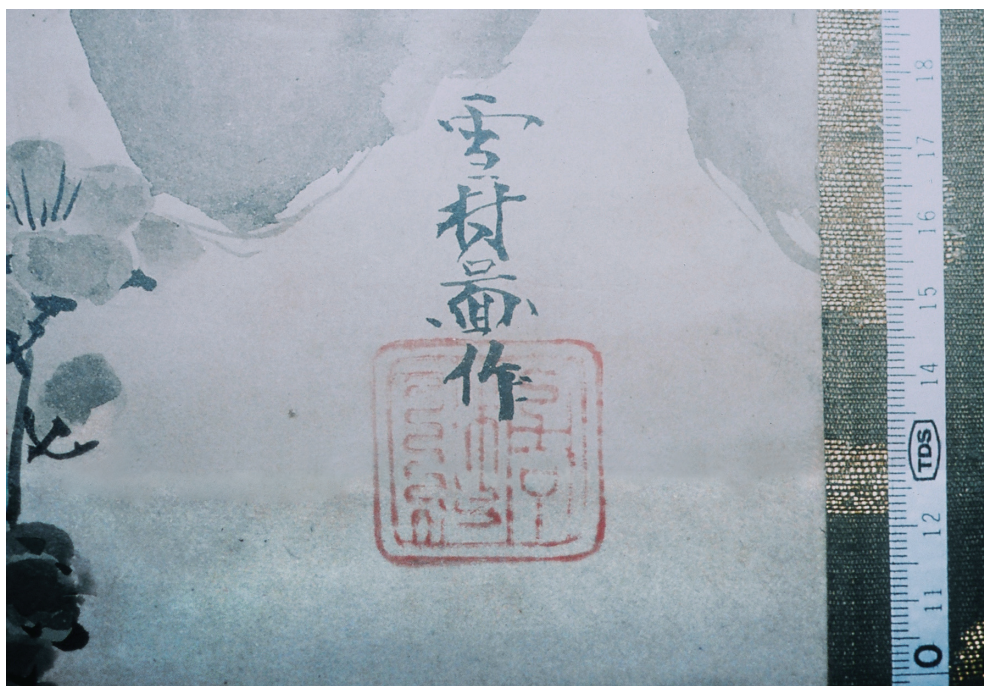 雪村啚作
18
17
16
15
14
TDS
12
11
10